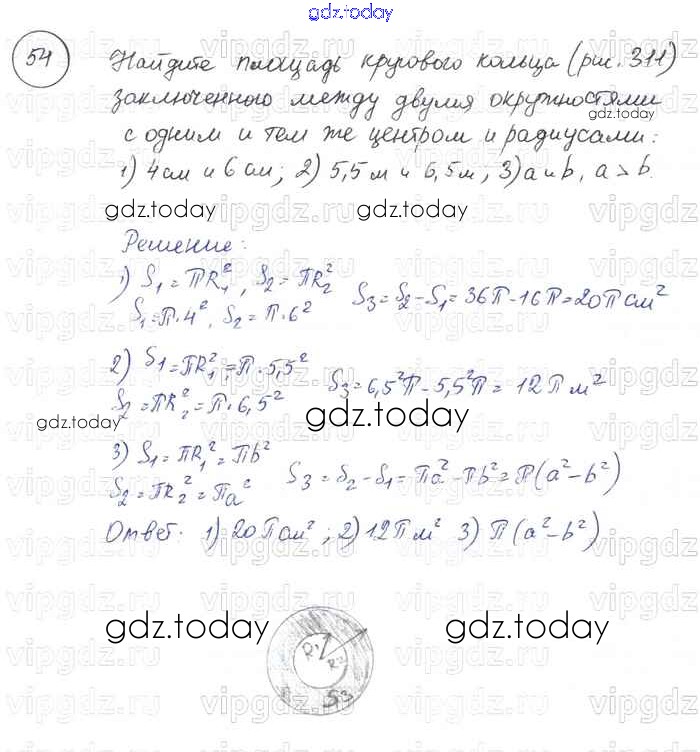 gdz.today
54
Найдите площадь кругового кольца (рис. 311)
заключенного между двумя окружностями
с одним и тем же центром и радиусами:
1) 4 см и 6 см; 2) 5,5 м и 6,5 м; 3) a и b, a > b.
gdz.today
gdz.today
gdz.today
Решение:
1) S₁ = πR₁², S₂ = πR₂²
S₁ = π·4², S₂ = π·6²
S₃ = S₂ − S₁ = 36π − 16π = 20π см²
2) S₁ = πR₁² = π·5,5²
S₂ = πR₂² = π·6,5²
S₃ = 6,5²π − 5,5²π = 12π м²
gdz.today
gdz.today
3) S₁ = πR₁² = πb²
S₂ = πR₂² = πa²
S₃ = S₂ − S₁ = πa² − πb² = π(a² − b²)
Ответ: 1) 20π см²; 2) 12π м² 3) π(a² − b²)
gdz.today
gdz.today
R¹
R²
S3
vipgdz.ru